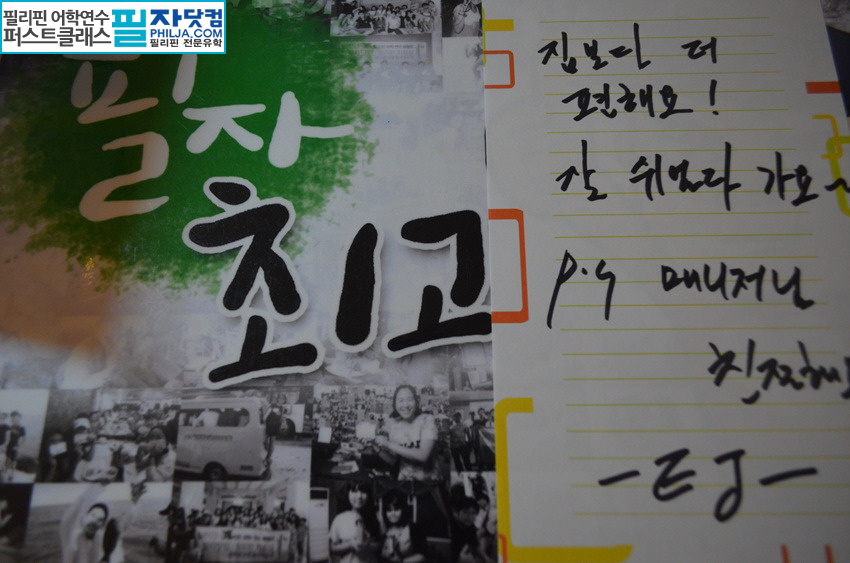 필리핀 어학연수
퍼스트클래스
필자닷컴
PHILJA.COM
필리핀 전문유학
필자
최고
집보다 더
편해요!
잘 쉬었다 가요~
P.S 매니저님
친절해요
-EJ-